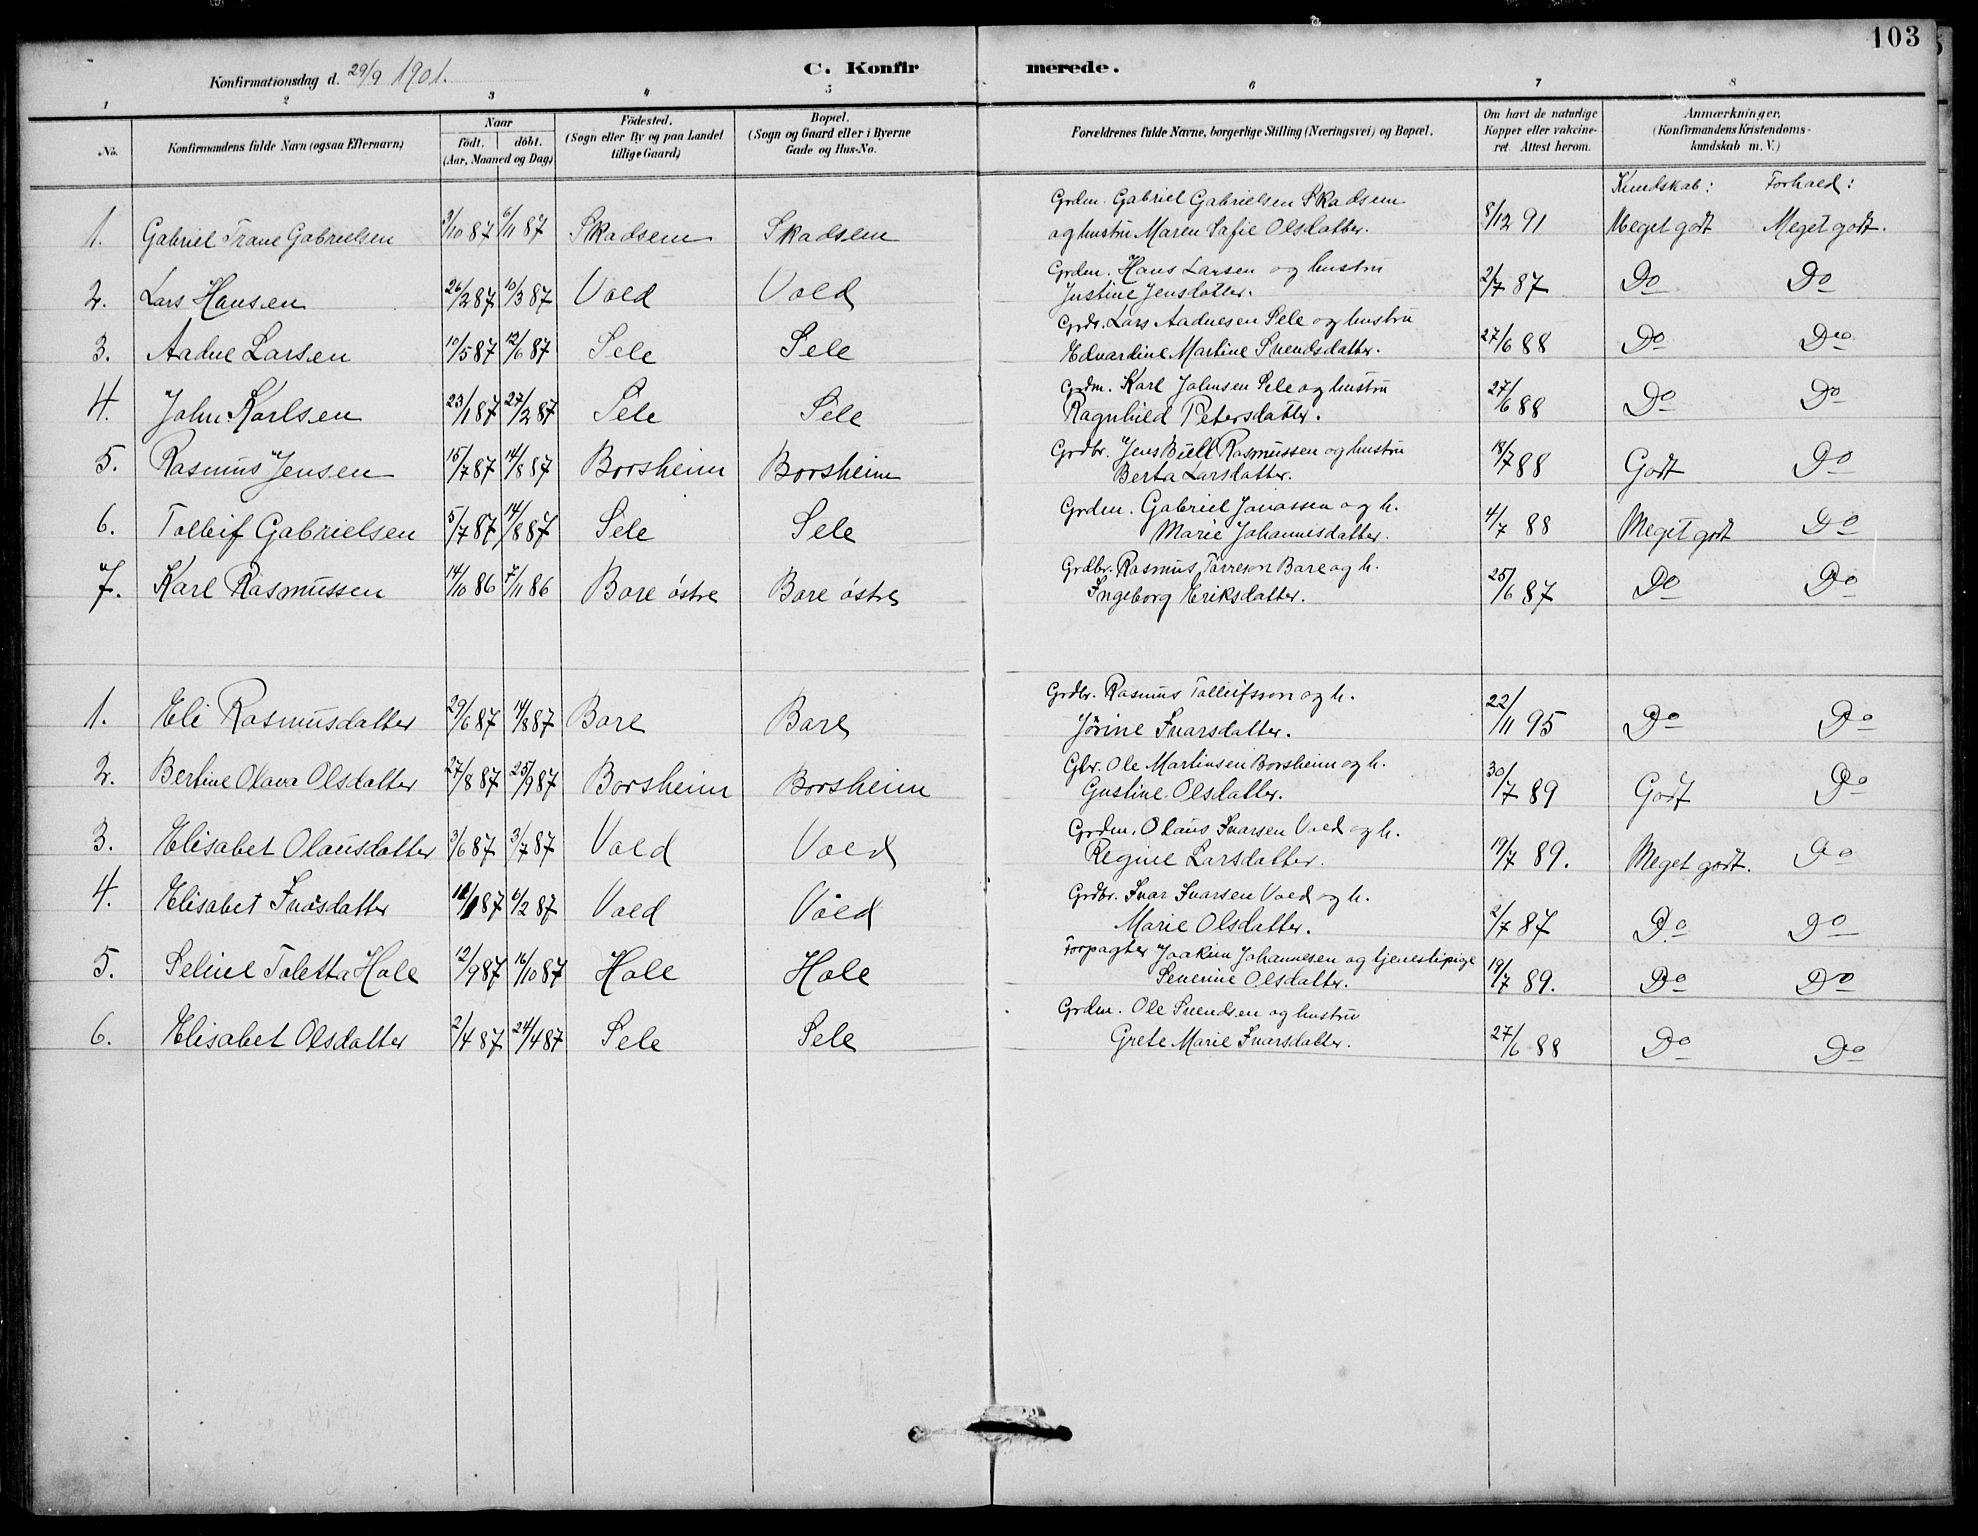 103
Konfirmationsdag d. 29/9 1901.
C. Konfirmerede.
1 2 3 4 5 6 7 8
No. Konfirmandens fulde Navn (ogsaa Efternavn) Naar födt. döbt. (Aar, Maaned og Dag) Födested. (Sogn eller By og paa Landet tillige Gaard) Bopæl. (Sogn og Gaard eller i Byerne Gade og Hus-No. Forældrenes fulde Navne, borgerlige Stilling (Næringsvei) og Bopæl. Om havt de naturlige Kopper eller vakcineret. Attest herom. Anmærkninger. (Konfirmandens Kristendomskundskab m. V.)
Kundskab: Forhold:
1. Gabriel Trane Gabrielsen 3/10 87 6/11 87 Skadsem Skadsem Grdm. Gabriel Gabrielsen Skadsem
og hustru Maren Safie Olsdatter. 8/12 91 Meget godt Meget godt.
2. Lars Hansen 26/2 87 10/3 87 Vold Vold Grdm. Hans Larsen og hustru
Justine Jensdatter. 2/7 87 Do Do
3. Aadne Larsen 10/5 87 12/6 87 Sele Sele Grdr. Lars Aadnesen Sele og hustru
Edvardine Martine Svendsdatter. 27/6 88 Do Do
4. John Karlsen 23/1 87 27/2 87 Sele Sele Grdm. Karl Johnsen Sele og hustru
Ragnhild Petersdatter. 27/6 88 Do Do
5. Rasmus Jensen 15/7 87 14/8 87 Borsheim Borsheim Grdbr. Jens Bull Rasmussen og hustru
Berta Larsdatter. 18/7 88 Godt Do
6. Tolleif Gabrielsen 5/7 87 14/8 87 Sele Sele Grdm. Gabriel Jonassen og h.
Marie Johannesdatter. 4/7 88 Meget godt Do
7. Karl Rasmussen 14/10 86 7/11 86 Bore östre Bore östre Grdbr. Rasmus Torreson Bore og h.
Ingeborg Eriksdatter. 25/6 87 Do Do
1. Eli Rasmusdatter 29/6 87 14/8 87 Bore Bore Grdbr. Rasmus Tolleifsson og h.
Jörine Ivarsdatter. 22/11 95 Do Do
2. Bertine Olava Olsdatter 27/8 87 25/9 87 Borsheim Borsheim Gbr. Ole Martinsen Borsheim og h.
Gustine Olsdatter. 30/7 89 Godt Do
3. Elisabet Olausdatter 3/6 87 3/7 87 Vold Vold Grdm. Olaus Ivarsen Vold og h.
Regine Larsdatter. 19/7 89. Meget godt. Do
4. Elisabet Ivarsdatter /1 87 6/2 87 Vold Vold Grdbr. Ivar Ivarsen Vold og h.
Marie Olsdatter. 2/7 87 Do Do
5. Seline Toletta Hole 12/9 87 16/10 87 Hole Hole Forpagter Joakim Johannesen og tjenestepige
Severine Olsdatter. 19/7 89. Do Do
6. Elisabet Olsdatter 2/4 87 24/4 87 Sele Sele Grdm. Ole Svendsen og hustru
Grete Marie Ivarsdatter. 27/6 88 Do Do